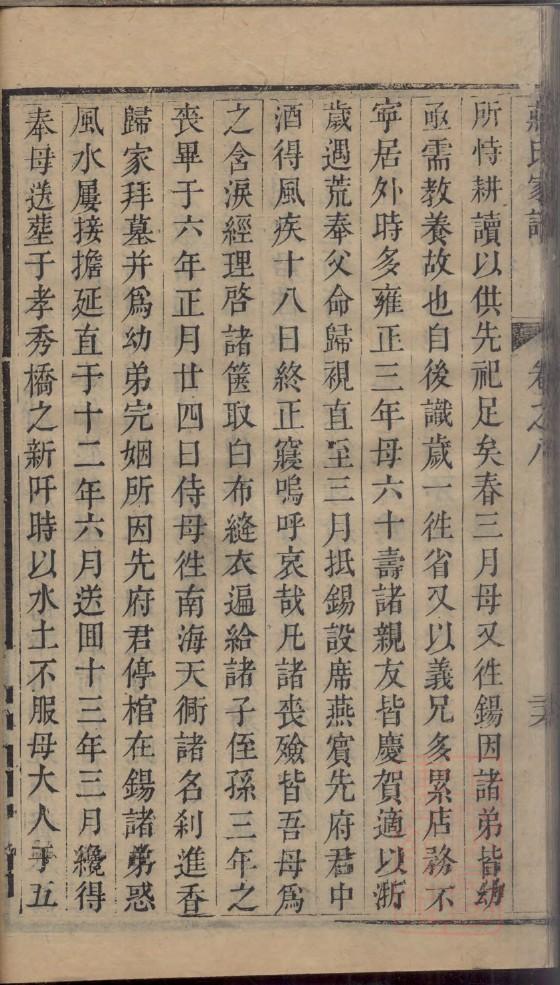 氏家譜
卷之八
所恃耕讀以供先祀足矣春三月母又徃鍚因諸弟皆幼
亟需教養故也自後識歲一徃省又以義兄多累店務不
寕居外時多雍正三年母六十壽諸親友皆慶賀適以淅
歲遇荒奉父命歸視直至三月抵錫設席燕賓先府君中
酒得風疾十八日終正寢嗚呼哀哉凡諸喪殮皆吾母爲
之含淚經理啓諸篋取白布縫衣遍給諸子侄孫三年之
喪畢于六年正月廿四日侍母徃南海天衕諸名刹進香
歸家拜墓并爲幼弟完姻所因先府君停棺在錫諸弟惑
風水屢接擔延直于十二年六月送囬十三年三月纔得
奉母送塟于孝秀橋之新阡時以水土不服母大人于五